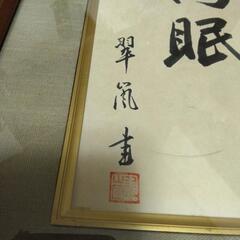 眠
翠嵐書